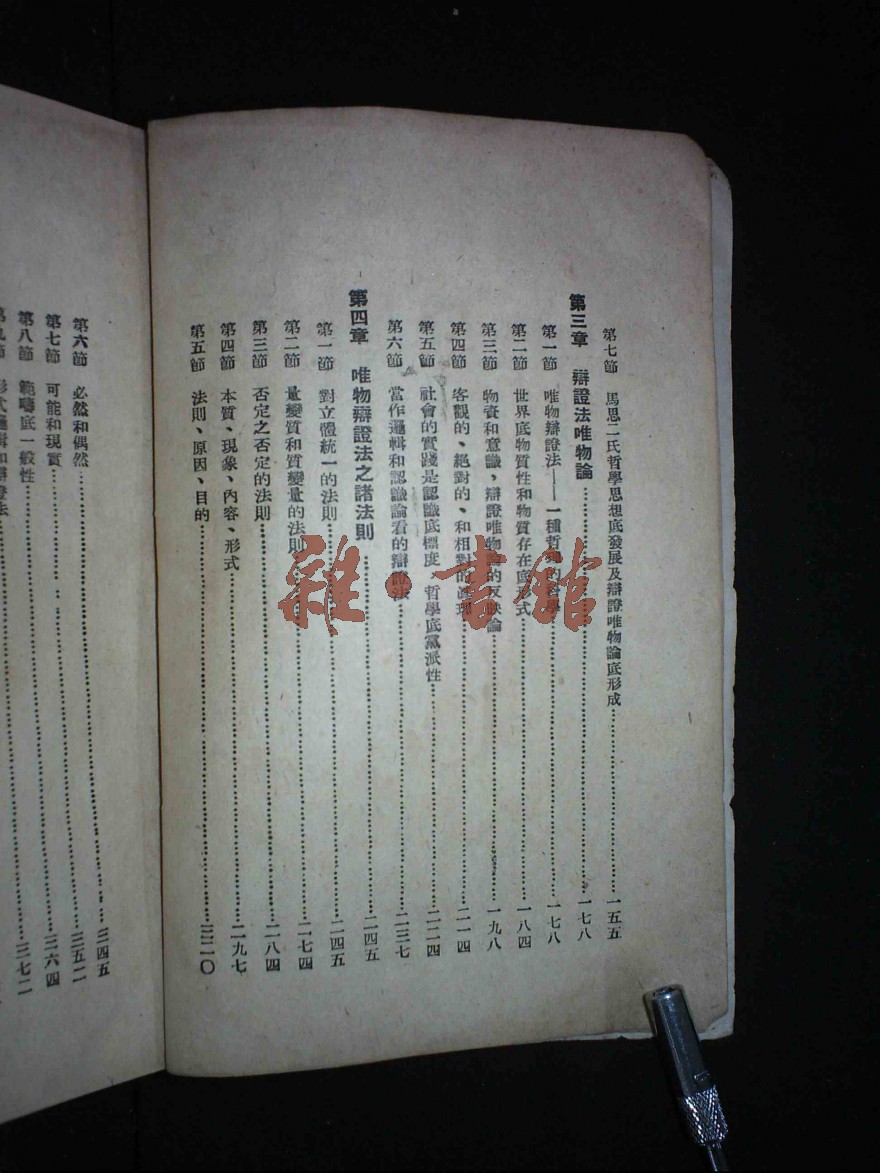 第七節 馬恩二氏哲學思想底發展及辯證唯物論底形成……一五五
第三章 辯證法唯物論……一七八
第一節 唯物辯證法——一種哲學的科學……一七八
第二節 世界底物質性和物質存在底形式……一八四
第三節 物質和意識、辯證唯物論的反映論……一九八
第四節 客觀的、絕對的、和相對的真理……二一四
第五節 社會的實踐是認識底標度、哲學底黨派性……二二四
第六節 當作邏輯和認識論看的辯證法……二三七
第四章 唯物辯證法之諸法則……二四五
第一節 對立體統一的法則……二四五
第二節 量變質和質變量的法則……二七四
第三節 否定之否定的法則……二八四
第四節 本質、現象、內容、形式……二九七
第五節 法則、原因、目的……三二〇
第六節 必然和偶然……三四五
第七節 可能和現實……三五二
第八節 範疇底一般性……三六四
第九節 形式邏輯和辯證法……三七二
雜·書館